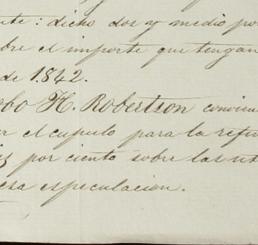 ste: dicho dos y medio po
bre el importe que tengan
de 1842.
obo H. Robertson convin
a el cupulo para la refu
por ciento sobre las ut
esa especulacion.